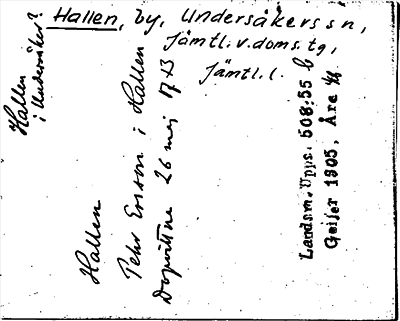 Hallen, by, Undersåkers sn,
Jämtl. v. doms. tg,
Jämtl. l.
Hallen
i Undersåker?
Hallen
Pehr Ersson i Hallen
26 maj 1713
Landsm. Upps. 508:55 b
Geijer 1905, Åre